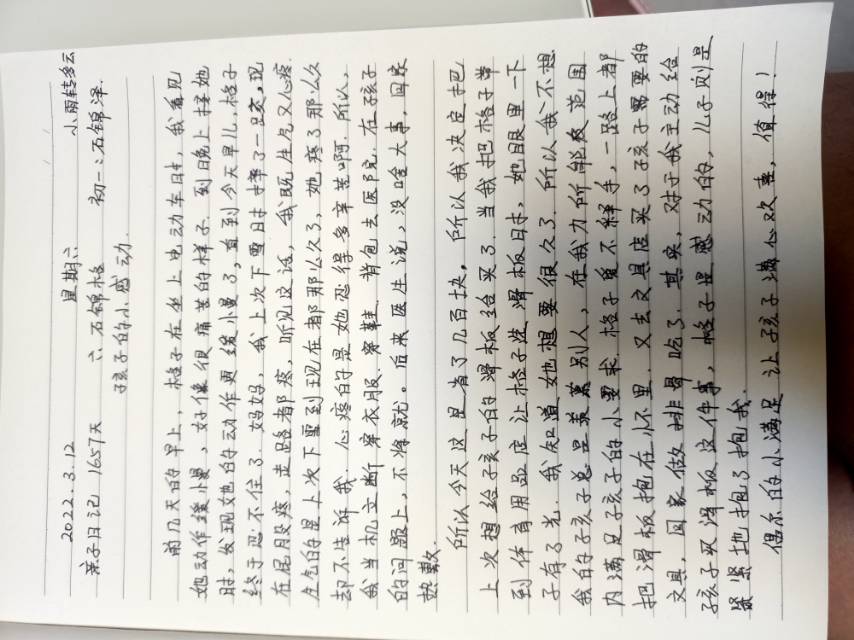 2022.3.12 星期六 小雨转多云
亲子日记 1657天 六:石锦格 初一:石锦泽.
孩子的小感动.
前几天的早上,格子在坐上电动车时,我看见
她动作缓慢,好像很痛苦的样子.到晚上接她
时,发现她的动作更缓慢了,直到今天早儿,格子
终于忍不住了.妈妈,我上次下雪时摔了一跤,现
在屁股疼,走路都疼.听见这话,我既生气又心疼.
生气的是上次下雪到现在都那么久了,她疼了那么久
却不告诉我.心疼的是她忍得多辛苦啊.所以,
我当机立断穿衣服.穿鞋.背包去医院.在孩子
的问题上,不将就。后来医生说,没啥大事,回家
热敷.
所以今天这里省了几百块,所以我决定把
上次想给子孩子的滑板给买了.当我把格子带
到体育用品店让格子选滑板时,她眼里一下
子有了光.我知道她想要很久了.所以我不想
我的孩子总是羡慕别人,在我力所能及范围
内满足子孩子的小要求.格子爱不释手,一路上都
把滑板抱在怀里.又去文具店买了孩子需要的
文具.回家做排骨吃了.其实,对于我主动给
孩子买滑板这件事,格子是感动的,儿子则是
紧紧地抱了抱我.
偶尔的小满足让孩子满心欢喜,值得!